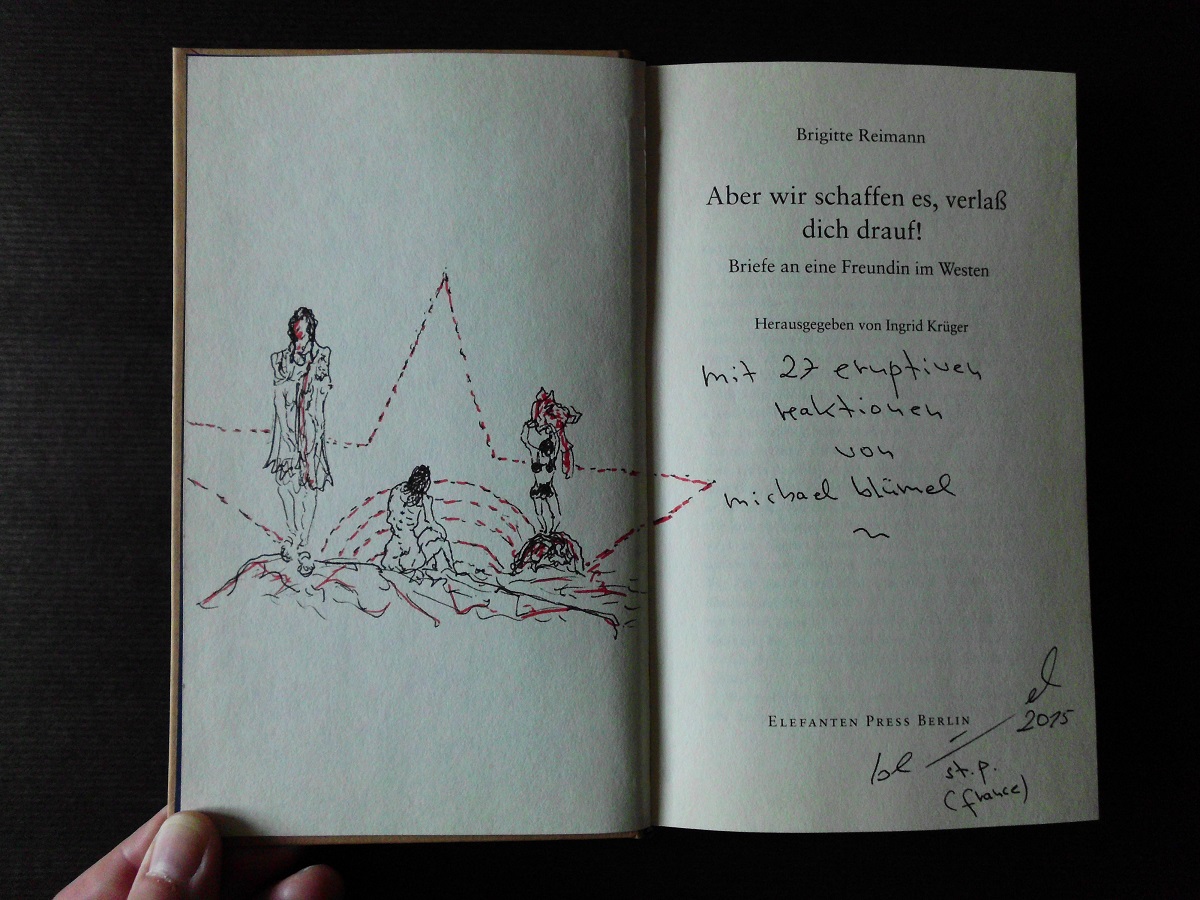 Brigitte Reimann
Aber wir schaffen es, verlaß
dich drauf!
Briefe an eine Freundin im Westen
Herausgegeben von Ingrid Krüger
mit 27 eruptiven
reaktionen
von
michael blümel
ELEFANTEN PRESS BERLIN
el
2015
bl
st.p.
(france)